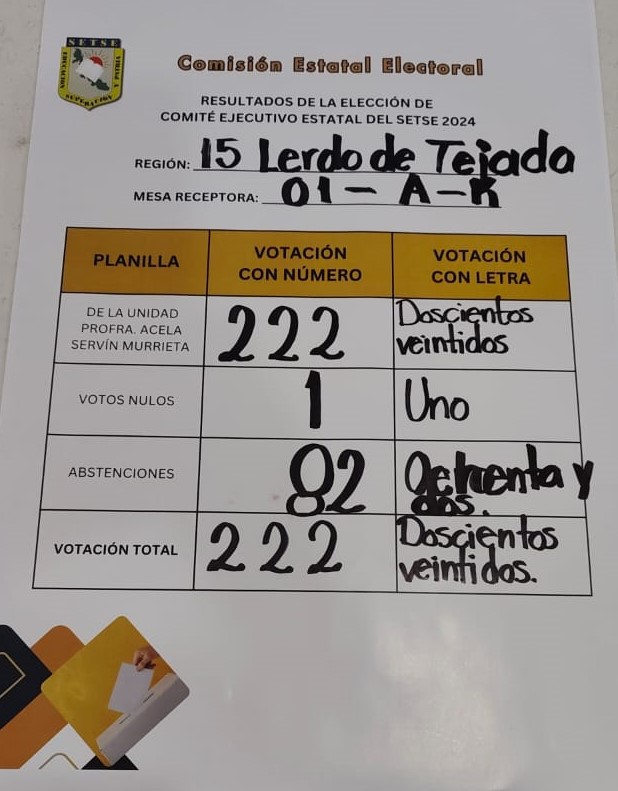 SETSE
SUPERACIÓN
Y PATRIA
Comisión Estatal Electoral
RESULTADOS DE LA ELECCIÓN DE
COMITÉ EJECUTIVO ESTATAL DEL SETSE 2024
REGIÓN: 15 Lerdo de Tejada
MESA RECEPTORA: 01 - A - K
PLANILLA
VOTACIÓN
CON NÚMERO
VOTACIÓN
CON LETRA
DE LA UNIDAD
PROFRA. ACELA
SERVÍN MURRIETA
222
Doscientos
veintidos
VOTOS NULOS
1
Uno
ABSTENCIONES
82
Ochenta y
dos.
VOTACIÓN TOTAL
222
Doscientos
veintidos.